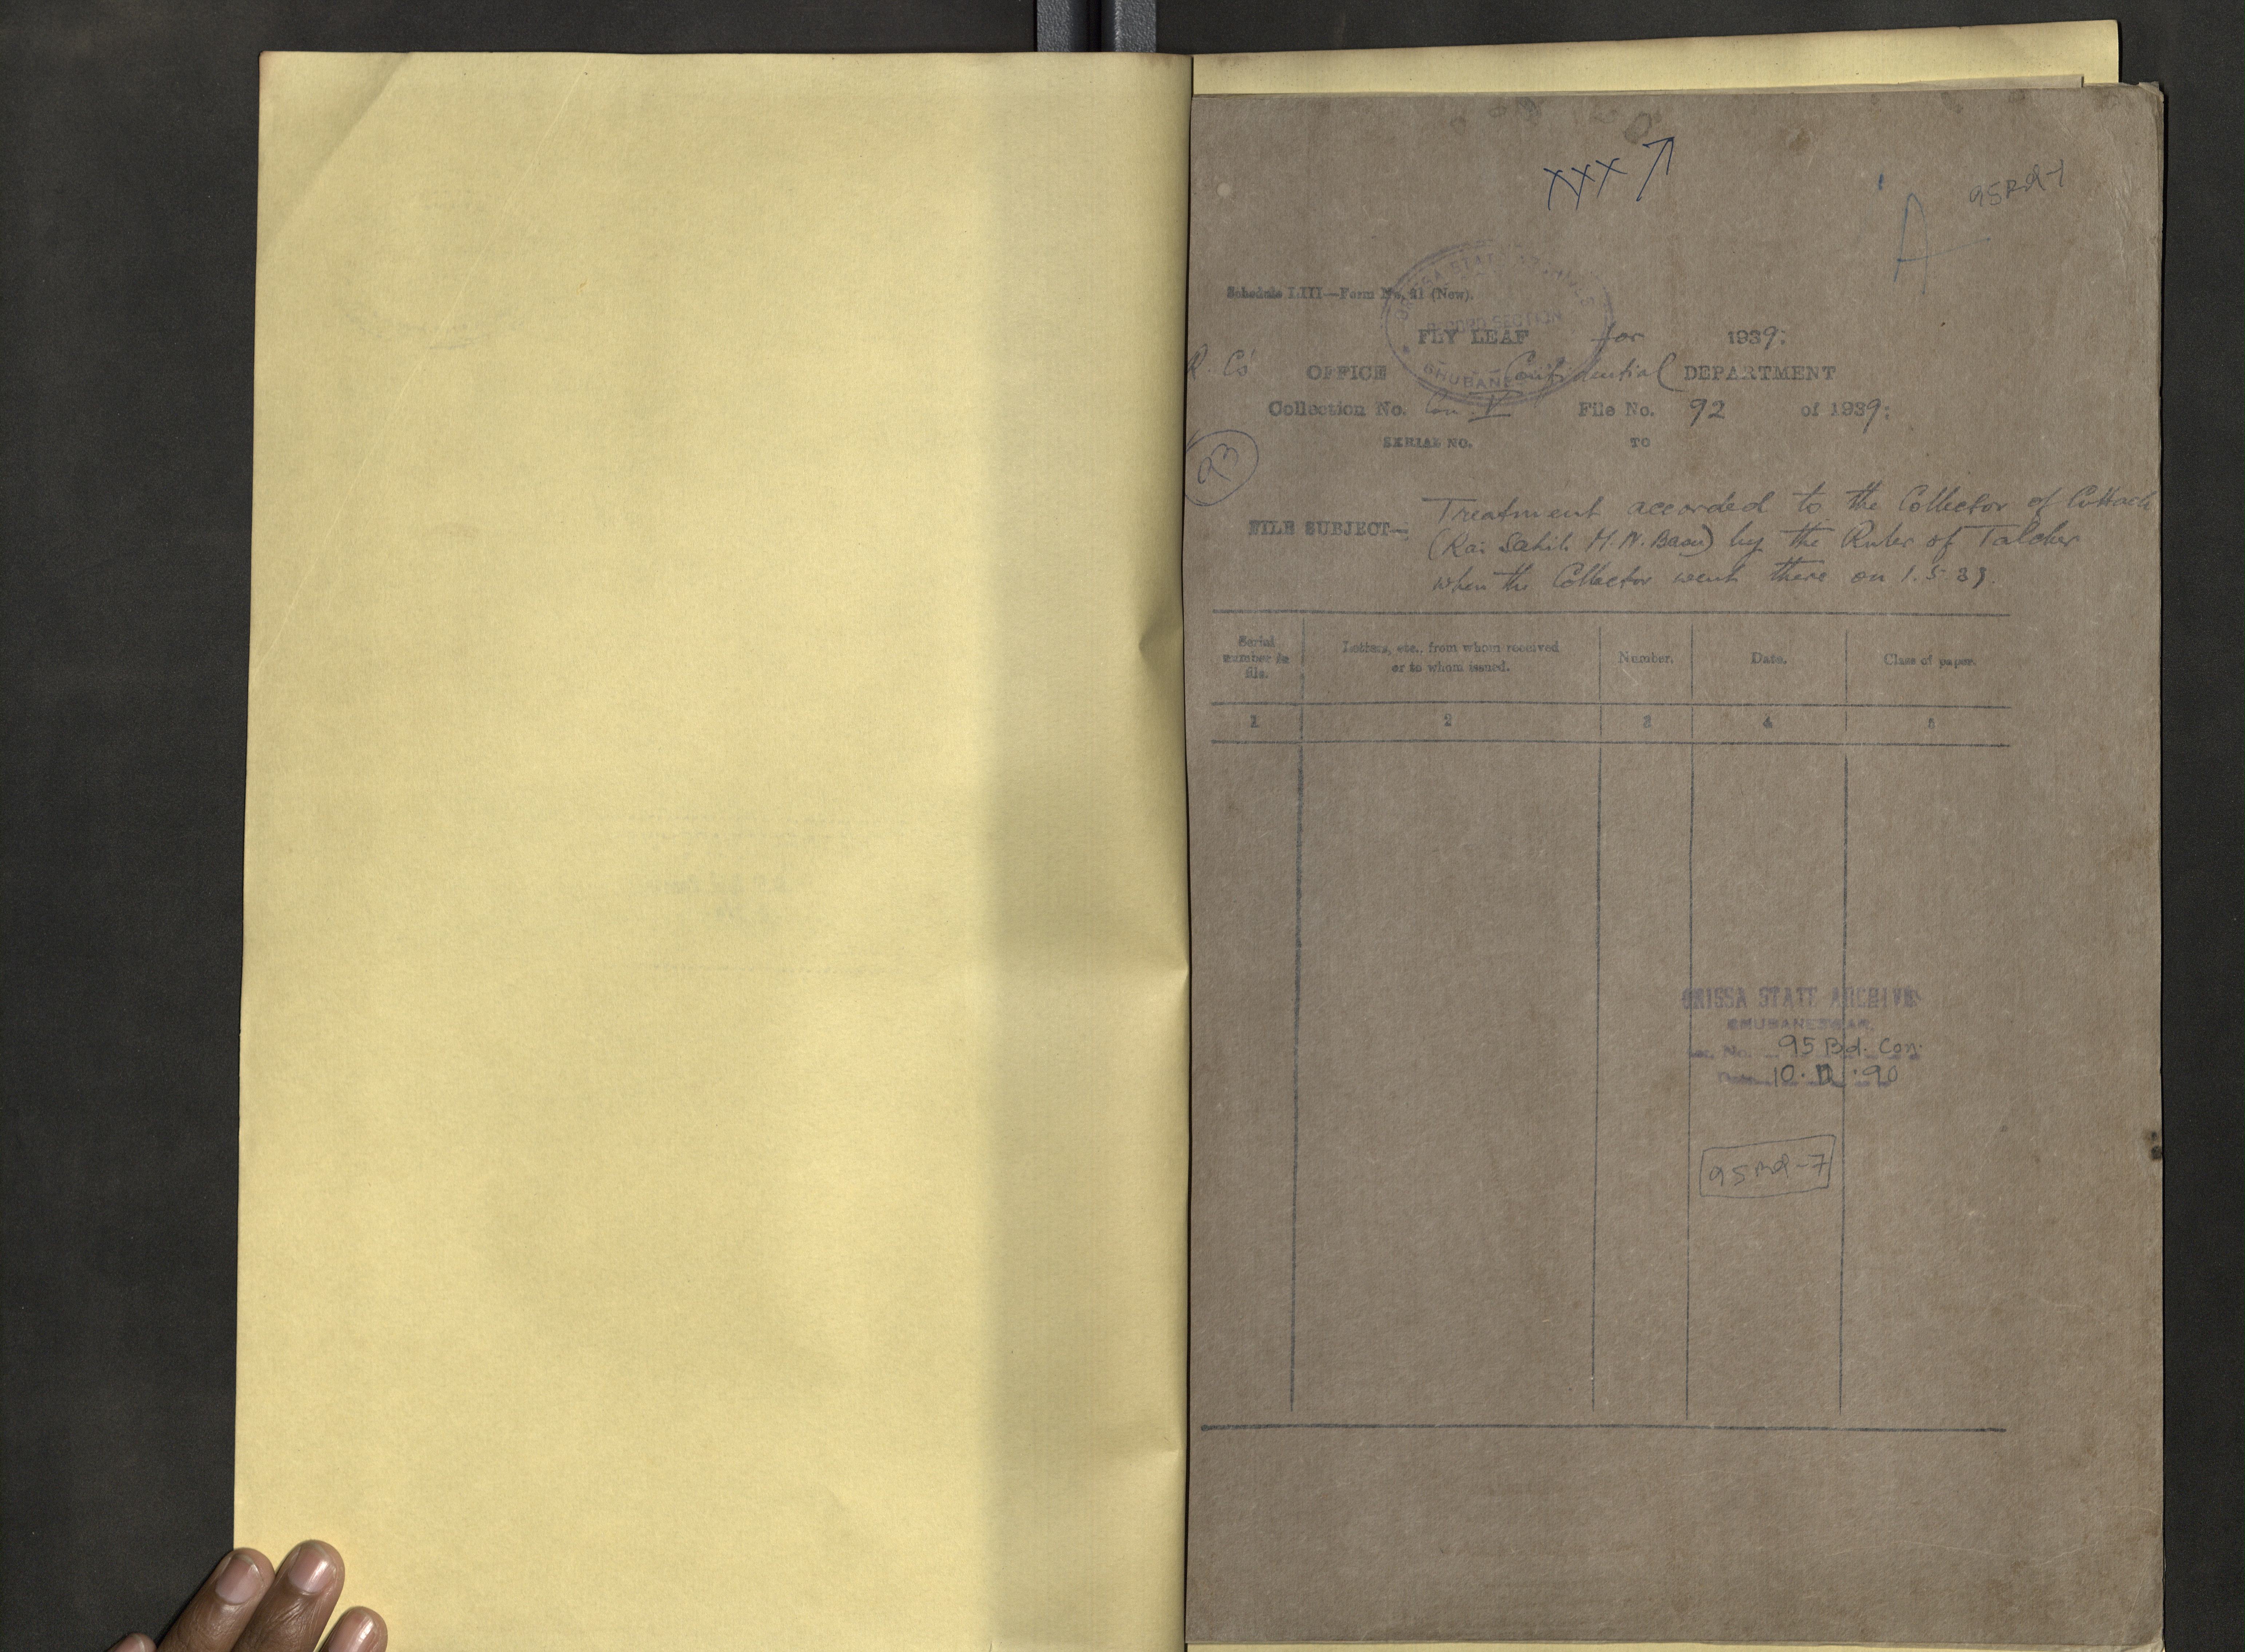 XXX
A
95Bd-1
Schedule LIII—Form No. 21 (New).
ORISSA STATE ARCHIVES
RECORD SECTION
BHUBANESWAR
FLY LEAF for 1939:
R. C's OFFICE Confidential DEPARTMENT
Collection No. Con. V File No. 92 of 1939:
SERIAL NO. TO
93
FILE SUBJECT— Treatment accorded to the Collector of Cuttack
(Rai Sahib M. N. Basu) by the Ruler of Talcher
when the Collector went there on 1.5.39.
Serial number in file.
Letters, etc., from whom received or to whom issued.
Number.
Date.
Class of paper.
1 2 3 4 5
ORISSA STATE ARCHIVES
BHUBANESWAR.
Acc. No. 95 Bd. Con.
Date 10. .90
95Bd-7